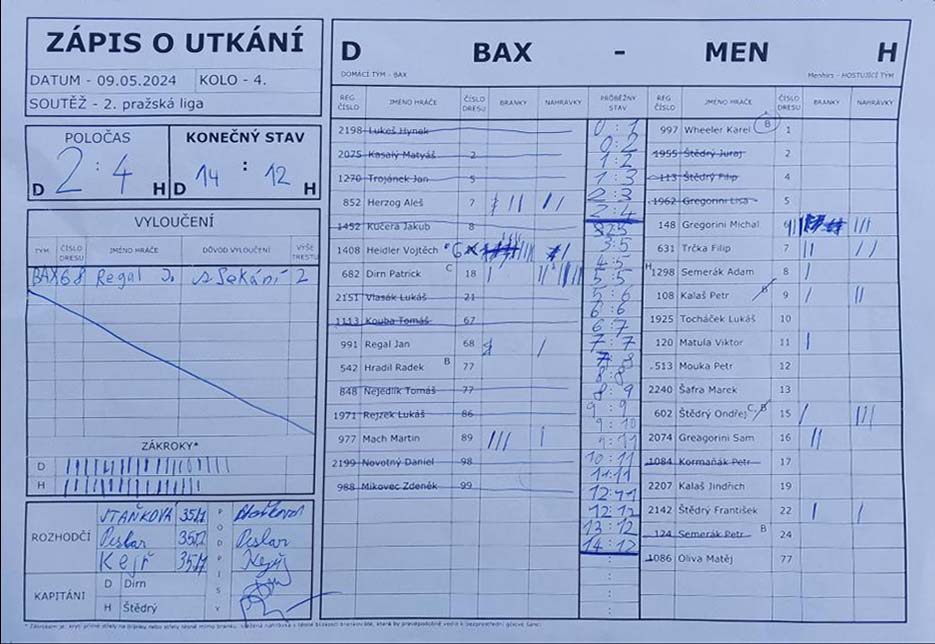 ZÁPIS O UTKÁNÍ
DATUM - 09.05.2024 KOLO - 4.
SOUTĚŽ - 2. pražská liga
POLOČAS KONEČNÝ STAV
D 2 : 4 H D 14 : 12 H
VYLOUČENÍ
TYM ČÍSLO DRESU JMÉNO HRÁČE DŮVOD VYLOUČENÍ VÝŠE TRESTU
BAX 68 Regal J. Sekání 2
ZÁKROKY*
D
H
ROZHODČÍ PODPISY
STAŇKOVÁ 3511
Pislar
Kejř
KAPITÁNI
D Dirn
H Štědrý
D BAX - MEN H
DOMÁCÍ TÝM - BAX Menhirs - HOSTUJÍCÍ TÝM
REG. ČÍSLO JMÉNO HRÁČE ČÍSLO DRESU BRANKY NAHRÁVKY PRŮBĚŽNÝ STAV REG. ČÍSLO JMÉNO HRÁČE ČÍSLO DRESU BRANKY NAHRÁVKY
2198 Lukeš Hynek 0 : 1 997 Wheeler Karel B 1
0 : 2
2075 Kasalý Matyáš 2 1 : 2 1955 Štědrý Juraj 2
1270 Trojánek Jan 5 1 : 3 113 Štědrý Filip 4
852 Herzog Aleš 7 2 : 3 1962 Gregorini Lisa 5
2 : 4
1452 Kučera Jakub 8 148 Gregorini Michal
1408 Heidler Vojtěch 3:5 631 Trčka Filip 7
4:5
682 Dirn Patrick C 18 5:5 1298 Semerák Adam 8
2151 Vlasák Lukáš 21 5 : 6 108 Kalaš Petr B 9
6 : 6
1113 Kouba Tomáš 67 6 : 7 1925 Tocháček Lukáš 10
991 Regal Jan 68 7 : 7 120 Matula Viktor 11
542 Hradil Radek B 77 7 : 8 513 Mouka Petr 12
8 : 8
848 Nejedlík Tomáš 77 8 : 9 2240 Šafra Marek 13
1971 Rejzek Lukáš 86 9 : 9 602 Štědrý Ondřej C, B 15
9 : 10
977 Mach Martin 89 9 : 11 2074 Greagorini Sam 16
2199 Novotný Daniel 98 10 : 11 1084 Kormaňák Petr 17
11:11
988 Mikovec Zdeněk 99 12:11 2207 Kalaš Jindřich 19
12:12 2142 Štědrý František 22
13 : 12 124 Semerák Petr B 24
14 : 12
1086 Oliva Matěj 77